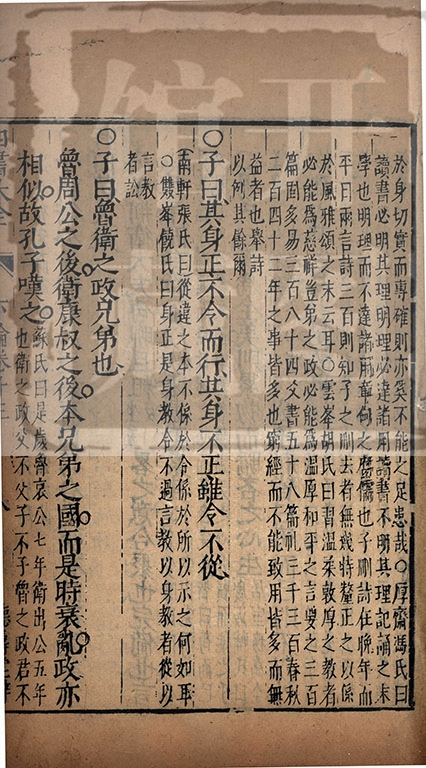 於身切實而專確則亦奚不能之足患哉○厚齋馮氏曰
讀書必明其理明理必達諸用讀書不明其理記誦之末
學也明理而不達諸用章句之腐儒也子刪詩在晚年而
平日兩言詩三百則知子之刪去者無幾特釐正之以係
於風雅頌之末云耳○雲峯胡氏曰習溫柔敦厚之教者
必能為慈祥豈弟之政必能為溫厚和平之言要之三百
篇固多易三百八十四爻書五十八篇礼三千三百春秋
二百四十二年之事皆多也窮經而不能致用皆多而無
益者也舉詩
以例其餘爾
○子曰其身正不令而行其身不正雖令不從
南軒張氏曰從違之本不係於令係於所以示之何如耳
○雙峯饒氏曰身正是身教令不過言教以身教者從以
言教
者訟
○子曰魯衛之政兄弟也
魯周公之後衛康叔之後本兄弟之國而是時衰亂政亦
相似故孔子嘆之
蘇氏曰是歲魯哀公七年衛出公五年
也衛之政父不父子不子魯之政君不